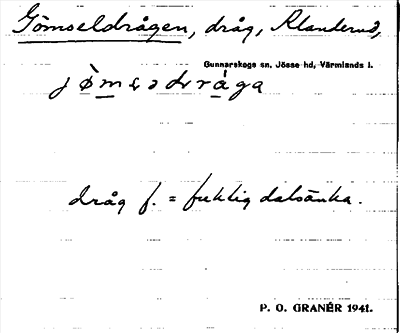 Gömseldrågen, dråg, Klanderud,
Gunnarskogs sn, Jösse hd, Värmlands l.
dråg f. = fuktig dalsänka.
P. O. GRANÉR 1941.